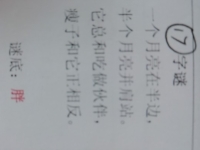 17 字谜
一个月亮在半边，
半个月亮并肩站。
它总和吃做伙伴，
瘦子和它正相反。
谜底：胖